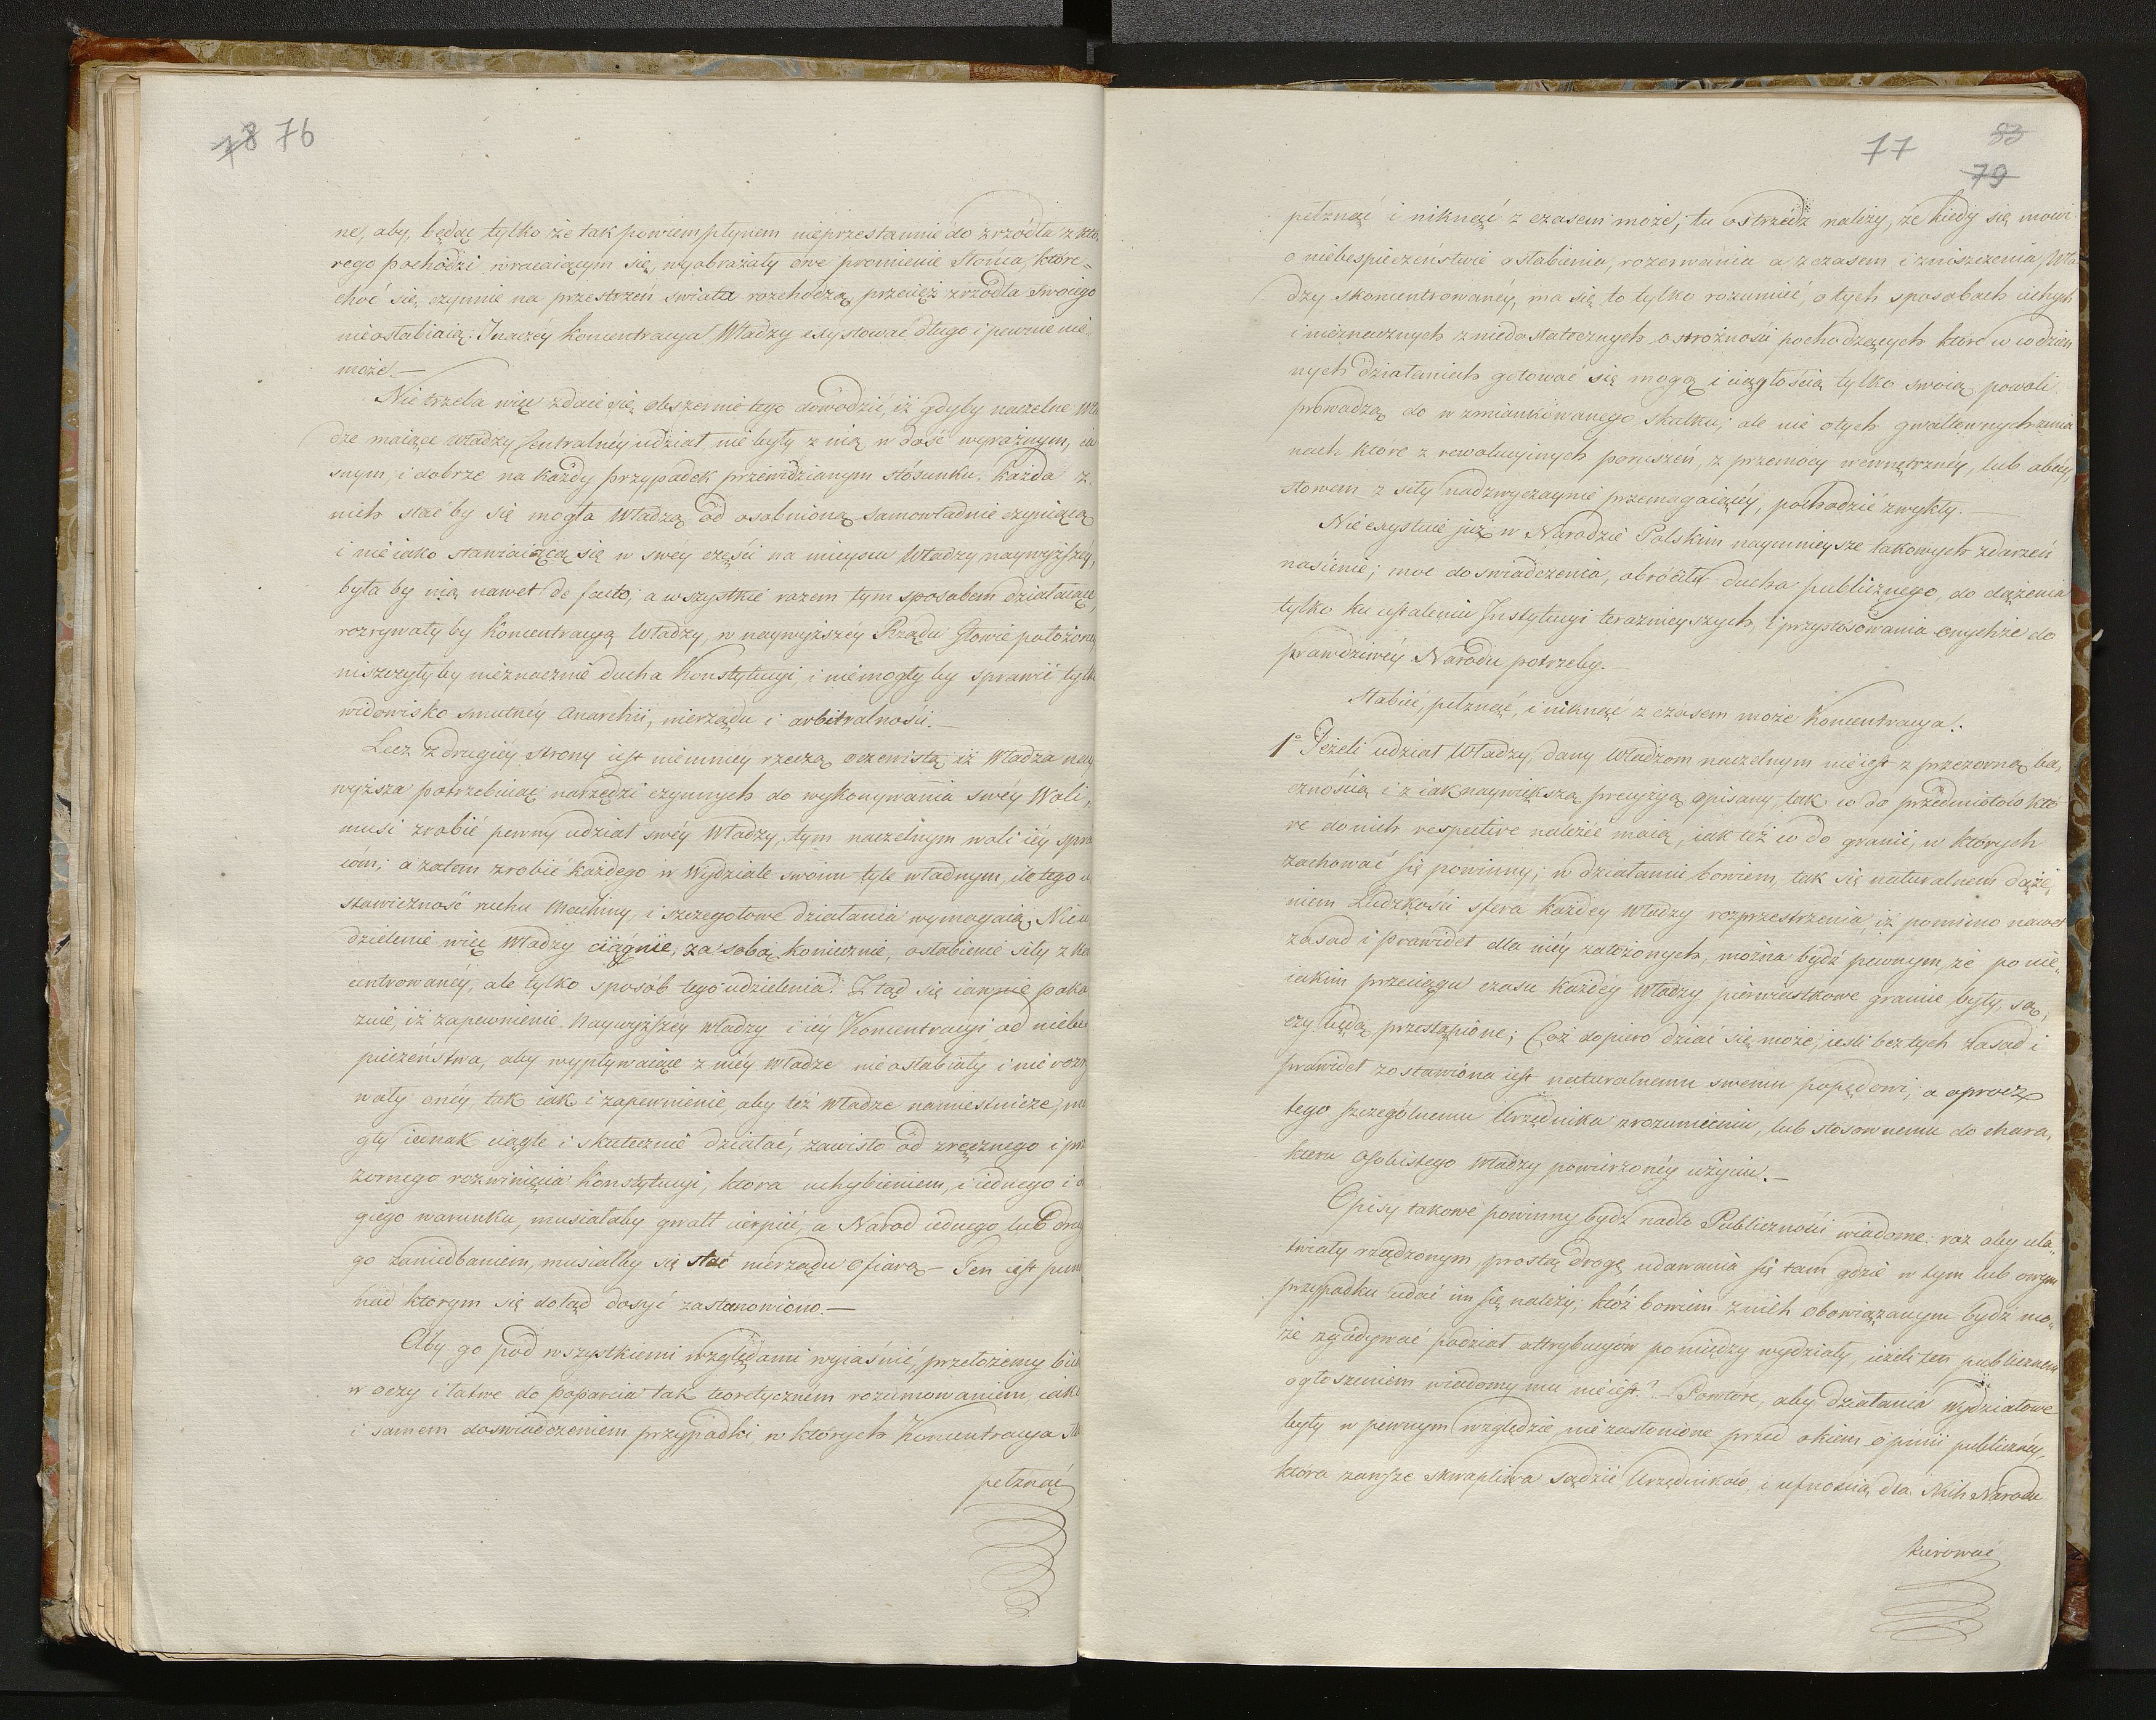 78 76
ne, aby, będąc tylko że tak powiem płynem nieprzestannie do zrzódła z któ,
rego pochodzi wracaiącym się, wyobrażały owe promienie Słońca, które=
choć się czynnie na przestrzeń swiata rozchodzą, przecięż zrzódła swoiego
nieosłabiaią. Inaczéy Koncentracya Władzy exystować długo i pewnie nie
może. —
Nie trzeba więc zdaie się obszernie tego dowodzić, iż gdyby naczelne Wła
dze maiące Władzy Centralnéy udział, nie były z nią w dość wyraźnym, ia
snym, i dobrze na każdy przypadek przewidzianym stósunku. Każda z
nich stać by się mogła Władzą od osobnioną samowładnie czyniącą
i nieiako stawiaiącą się w swéy części na mieyscu Władzy naywyższéy,
była by nią nawet de facto, a wszystkie razem tym sposobem działaiące,
rozrywały by Koncentracyą Władzy, w naywyższéy Rządu Głowie położoną
niszczyły by nieznacznie ducha Konstytucyi, i niemogły by sprawić tylko
widowisko smutnéy Anarchii, nierządu i arbitralności. —
Lecz z drugiéy strony iest niemniéy rzeczą oczewistą, iż Władza nay
wyższa potrzebuiąc narzędzi czynnych do wykonywania swéy Woli,
musi zrobić pewny udział swéy Władzy, tym naczelnym woli iéy spra
com; a zatem zrobić każdego w Wydziale swoim tyle władnym, ile tego u
stawiczność ruchu Machiny, i szczegołowe działania wymagaią. Nie u
dzielenie więc Władzy ciągnie, za sobą koniecznie, osłabienie siły z kon
centrowanéy, ale tylko sposób tego udzielenia. Z tąd się iawnie poka
zuie, iż zapewnienie Naywyższéy Władzy i iéy Koncentracyi od niebe
pieczeństwa, aby wypływaiące z niéy Władze nie osłabiały i nie rozry
wały onéy, tak iak i zapewnienie, aby też Władze namiestnicze, mo
gły iednak ciągle i skutecznie działać, zawisło od zręcznego i prze
zornego rozwinięcia Konstytucyi, ktora uchybieniem, i iednego i dru
giego warunku, musiałaby gwałt cierpieć, a Narod iednego lub drugie
go zaniedbaniem, musiałby się stać nierządu ofiarą — Ten iest punkt
nad ktorym się dotąd dosyć zastanowiono. —
Aby go pod wszystkiemi względami wyiaśnić, przełożemy biiące
w oczy i łatwe do poparcia tak teoretycznem rozumowaniem, iako
i samem doswiadczeniem przypadki, w których Koncentracya sła
pełznąć
77 53
79
pełznąć i niknąć z czasem może, tu ostrzedz należy, że kiedy się mowi
o niebespieczeństwie osłabienia, rozerwania a z czasem i zniszczenia, Wła
dzy skoncentrowanéy, ma się to tylko rozumieć, o tych sposobach cichych
i nieznacznych z niedostatecznych ostrożności pochodzących które w codzien
nych działaniach gotować się mogą i ciągłością tylko swoią, powoli
prowadzą do wzmiankowanego skutku; ale nie o tych gwałtownych zmia
nach które z rewolucyinych poruszeń, z przemocy wewnętrznéy, lub obcéy,
słowem z siły nadzwyczaynie przemagaiącéy, pochodzić zwykły. —
Nie exystuie już w Narodzie Polskim naymnieysze takowych zdarzeń
nasienie; moc doswiadczenia, obróciła ducha publicznego, do dążenia
tylko ku ustaleniu Instytucyi teraznieyszych, i przystósowania onychże do
prawdziwéy Narodu potrzeby. —
Słabieć, pełznąć, i niknąć z czasem może Koncentracya:
1º Jeżeli udział Władzy, dany Władzom naczelnym nieiest z przezorną ba,
cznóścią i z iaknaywiększą precyzyą opisany, tak co do przedmiotów któ
re do nich respective należeć maią, iak też co do granic, w których
zachować się powinny; w działaniu bowiem, tak się naturalnem dąże,
niem Ludzkości sfera każdey Władzy rozprzestrzenia, iż pomimo nawet
zasad i prawideł dla niéy założonych, można bydź pewnym, że po nie,
iakim przeciągu czasu każdéy Władzy pierwiastkowe granice były, są,
czy będą przestąpione; Cóż dopiero dziać się może, iesli bez tych zasad i
prawideł zostawiona iest naturalnemu swemu popędowi; a oprocz
tego szczególnemu Urzędnika zrozumieniu, lub stósownemu do chara,
kteru osobistego Władzy powierzonéy użyciu. —
Opisy takowe powinny bydź nadto Publiczności wiadome: raz aby uła„
twiały rządzonym prostą drogę udawania się tam gdzie w tym lub owym
przypadku udać im się należy; któż bowiem z nich obowiązanym bydź mo„
że zgadywać podział attrybucyów pomiędzy wydziały, ieżeli ten publicznem
ogłoszeniem wiadomy mu nieiest? — Powtóre, aby działania wydziałowe
były w pewnym względzie nie zasłonione przed okiem opinii publicznéy,
która zawsze skwapliwa sądzić Urzędników, i ufnością dla Nich Narodu
kierować